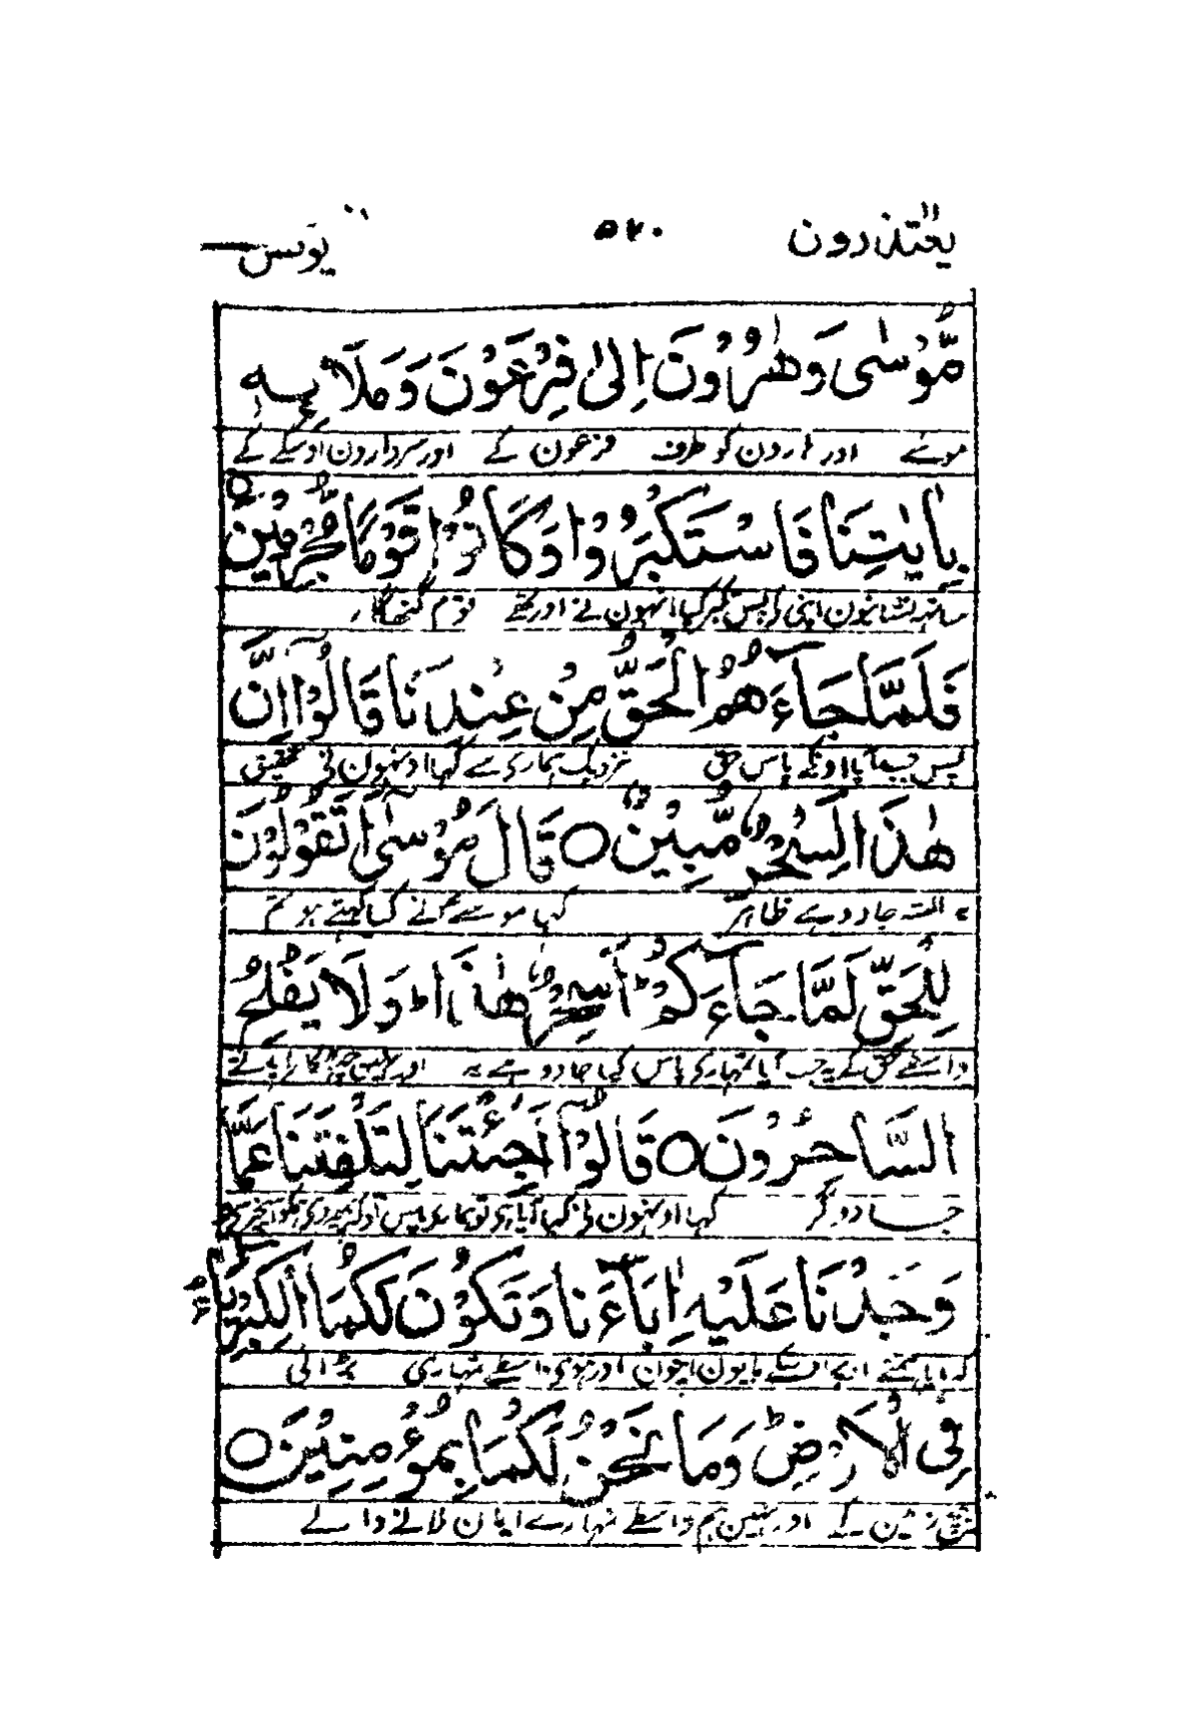 یعتذرون ۵۷۰ یونس ۱۰
مُّوْسٰی وَهٰرُوْنَ اِلٰی فِرْعَوْنَ وَمَلَا۠ئِهٖ
موسے اور ہارون کو طرف فرعون کے اور سردارون اوسکے کے
بِاٰیٰتِنَا فَاسْتَكْبَرُوْا وَكَانُوْا قَوْمًا مُّجْرِمِیْنَ
ساتھ نشانیون اپنی کے پس تکبر کیا انہون نے اور تھے قوم گنہگار
فَلَمَّا جَآءَهُمُ الْحَقُّ مِنْ عِنْدِنَا قَالُوْۤا اِنَّ
پس جب آیا اونکے پاس حق نزدیک ہماری سے کہا اونہون نی تحقیق
هٰذَا لَسِحْرٌ مُّبِیْنٌ ○ قَالَ مُوْسٰۤی اَتَقُوْلُوْنَ
یہ البتہ جادو ہے ظاہر کہا موسے نے کیا کہتے ہو تم
لِلْحَقِّ لَمَّا جَآءَكُمْ ؕ اَسِحْرٌ هٰذَا ؕ وَلَا یُفْلِحُ
واسطے حق کے جب آیا تمہاری پاس کیا جادو ہے یہ اور نہین
السّٰحِرُوْنَ ○ قَالُوْۤا اَجِئْتَنَا لِتَلْفِتَنَا عَمَّا
جادوگر کہا اونہون نی کیا آیا ہی تو ہماری پاس
وَجَدْنَا عَلَیْهِ اٰبَآءَنَا وَتَكُوْنَ لَكُمَا الْكِبْرِیَآءُ
کہ پایا ہمنے اوپر اوسکے باپون اپنون اور ہووی واسطے تمہاری بڑائی
فِی الْاَرْضِ ؕ وَمَا نَحْنُ لَكُمَا بِمُؤْمِنِیْنَ ○
بیچ زمین کے اور نہین ہم واسطے تمہارے ایمان لانے والے